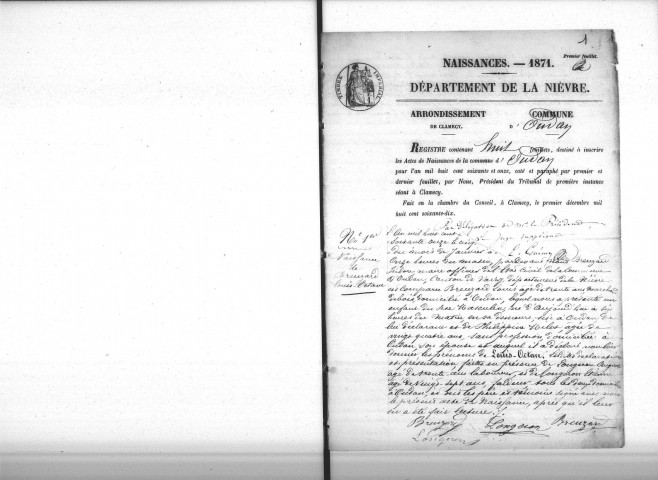 1
Premier feuillet.
NAISSANCES. — 1871.
DÉPARTEMENT DE LA NIÈVRE.
TIMBRE IMPÉRIAL
ARRONDISSEMENT
DE CLAMECY.
COMMUNE
D' Oudan
REGISTRE contenant huit feuillets, destiné à inscrire
les Actes de Naissances de la commune d' Oudan
pour l'an mil huit cent soixante et onze, coté et paraphé par premier et
dernier feuillet, par Nous, Président du Tribunal de première instance
séant à Clamecy.
Fait en la chambre du Conseil, à Clamecy, le premier décembre mil
huit cent soixante-dix.
Par délégation de M. le Président
juge suppléant
N° 1er
Naissance
de
Breuzard
Louis Octave
L'an mil huit cent
soixante onze le cinq
du mois de Janvier à
onze heures du matin, par devant nous Breuzard
maire officier de l'état civil de la commune
d'Oudan, canton de Varzy, département de la Nièvre
est comparu Breuzard Louis âgé de trente ans
de bois domicilié à Oudan, lequel nous a présenté un
enfant du sexe masculin, né d'aujourd'hui à six
heures du matin en sa demeure, sise à Oudan de
lui déclarant et de Philippine Millot âgée de
vingt quatre ans, sans profession, domiciliée à
Oudan, son épouse et auquel il a déclaré vouloir
donner les prénoms de Louis-Octave, lesdites déclaration
et présentation faites en présence de Longeron
âgé de trente ans laboureur, et de Longeron
âgé de vingt sept ans,
à Oudan, et ont les père et témoins signé avec nous
le présent acte de naissance, après que il leur
en a été fait lecture.
Breuzard Longeron Breuzard
Longeron